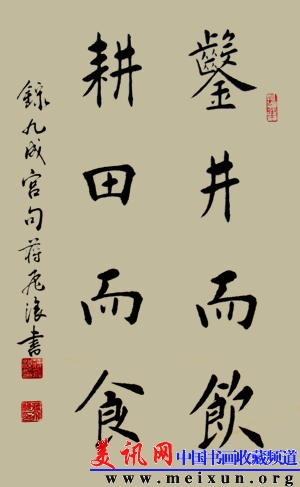 鑿井而飲
耕田而食
錄九成宮句蔣飛 書
美讯网 中国书画收藏频道
www.meixun.org